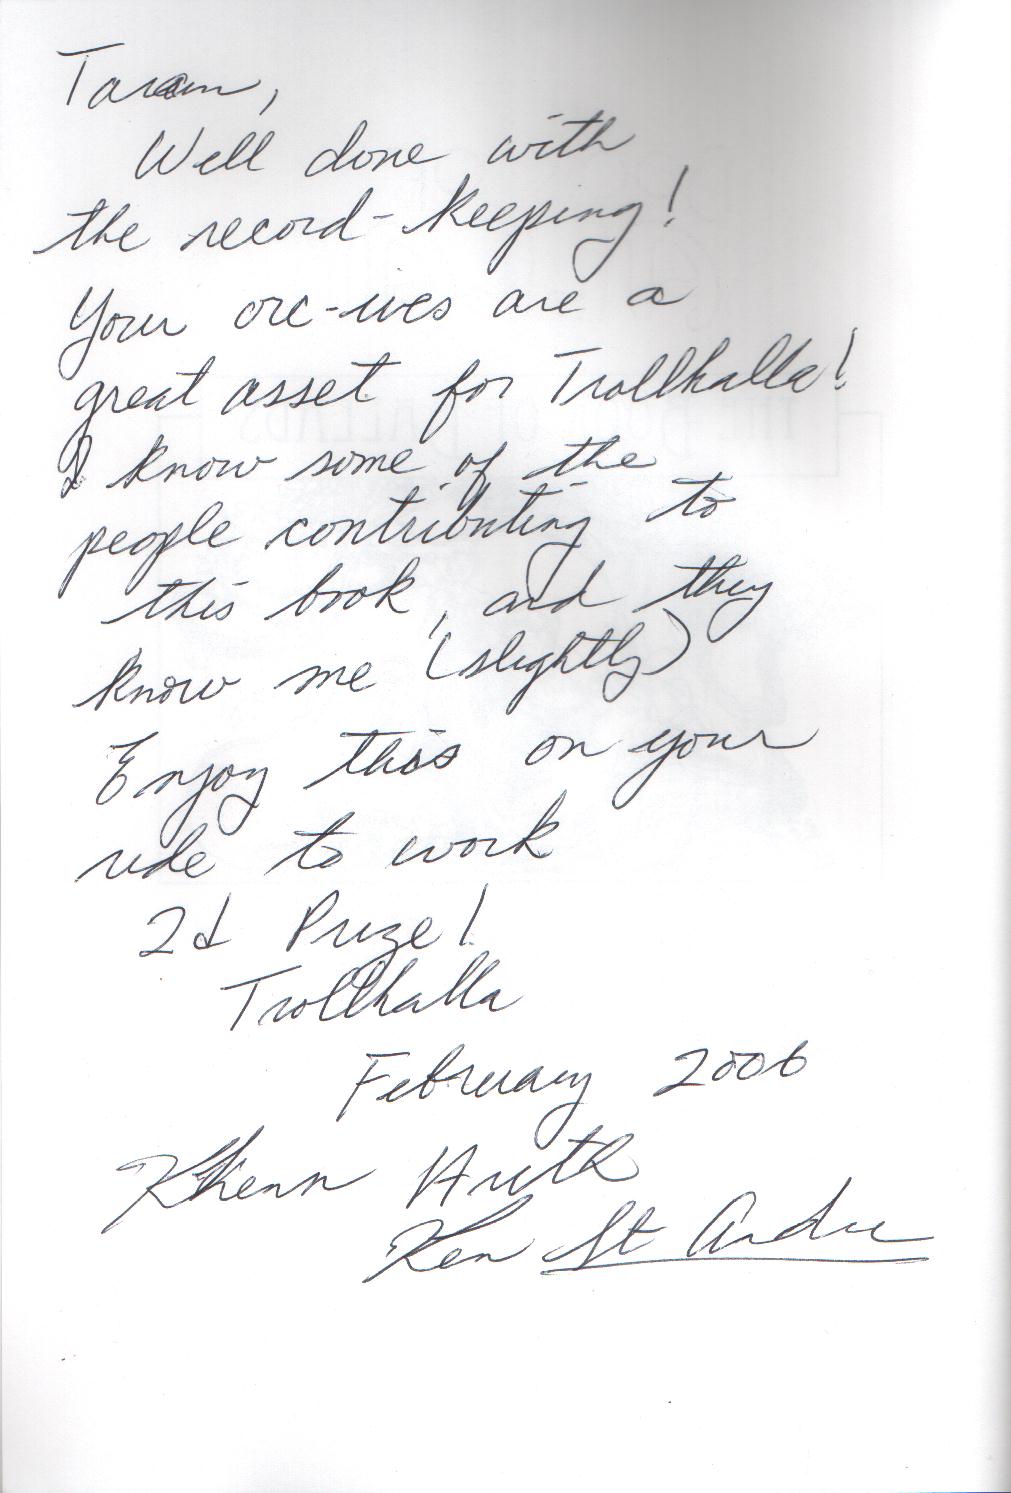 Taran,
Well done with
the record-keeping!
Your orc-ives are a
great asset for Trollhalla!
I know some of the
people contributing to
this book, and they
know me (slightly)
Enjoy this on your
ride to work
2d Prize!
Trollhalla
February 2006
Khenn Arrth
Ken St Andre